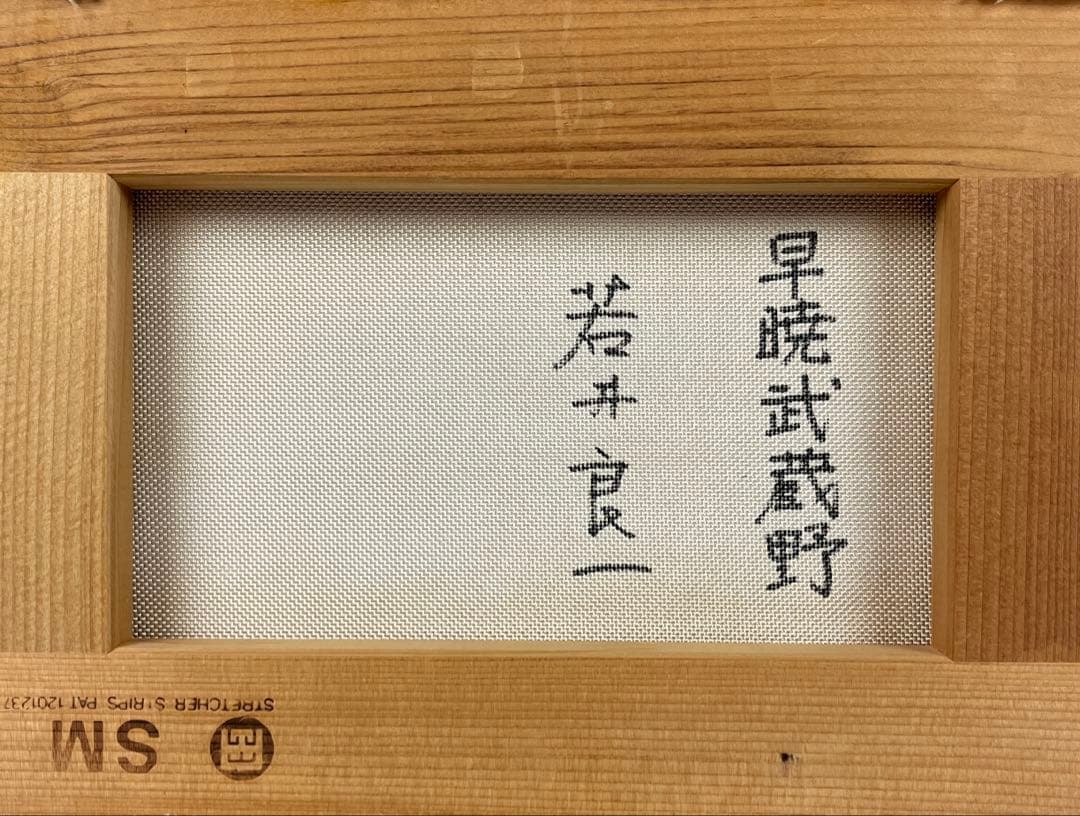 早暁武蔵野
若井良一
STRETCHER STRIPS PAT 1201237
SM